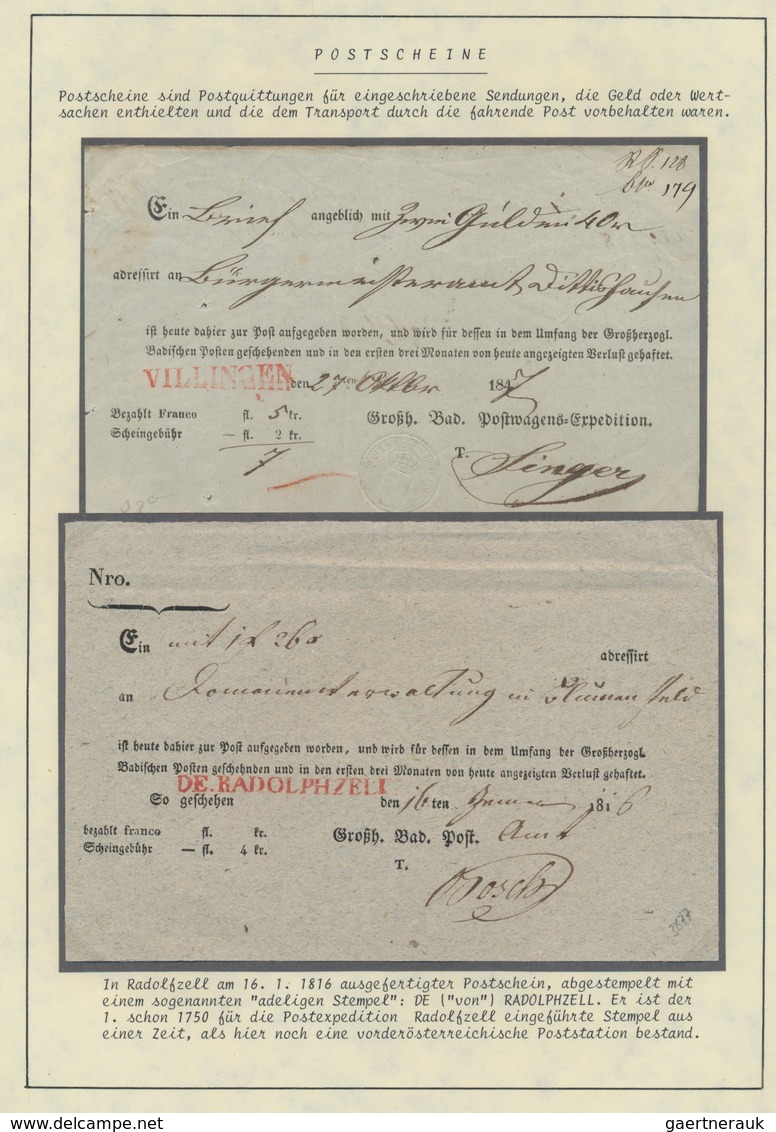 POSTSCHEINE
Postscheine sind Postquittungen für eingeschriebene Sendungen, die Geld oder Wert-
sachen enthielten und die dem Transport durch die fahrende Post vorbehalten waren.
128
179
Ein Brief angeblich mit Zwei Gulden 40 xr
adressirt an Bürgermeisteramt Dittishausen
ist heute dahier zur Post aufgegeben worden, und wird für dessen in dem Umfang der Großherzogl.
Badischen Posten geschehenden und in den ersten drei Monaten von heute angezeigten Verlust gehaftet.
VILLINGEN den 27ten Oktbr 1847
Bezahlt Franco fl. 5 kr. Großh. Bad. Postwagens-Expedition.
Scheingebühr — fl. 2 kr.
7
T. Singer
Nro.
Ein mit 1 f 26 x
adressirt
an Domainenverwaltung in Blumenfeld
ist heute dahier zur Post aufgegeben worden, und wird für dessen in dem Umfang der Großherzogl.
Badischen Posten geschehnden und in den ersten drei Monaten von heute angezeigten Verlust gehaftet.
DE.RADOLPHZELL
So geschehen den 16ten 1816
bezahlt franco fl. kr. Großh. Bad. Post. Amt
Scheingebühr — fl. 4 kr.
T.
Bosch
3877
In Radolfzell am 16. 1. 1816 ausgefertigter Postschein, abgestempelt mit
einem sogenannten "adeligen Stempel": DE ("von") RADOLPHZELL. Er ist der
1. schon 1750 für die Postexpedition Radolfzell eingeführte Stempel aus
einer Zeit, als hier noch eine vorderösterreichische Poststation bestand.
www.delcampe.net
gaertnerauk